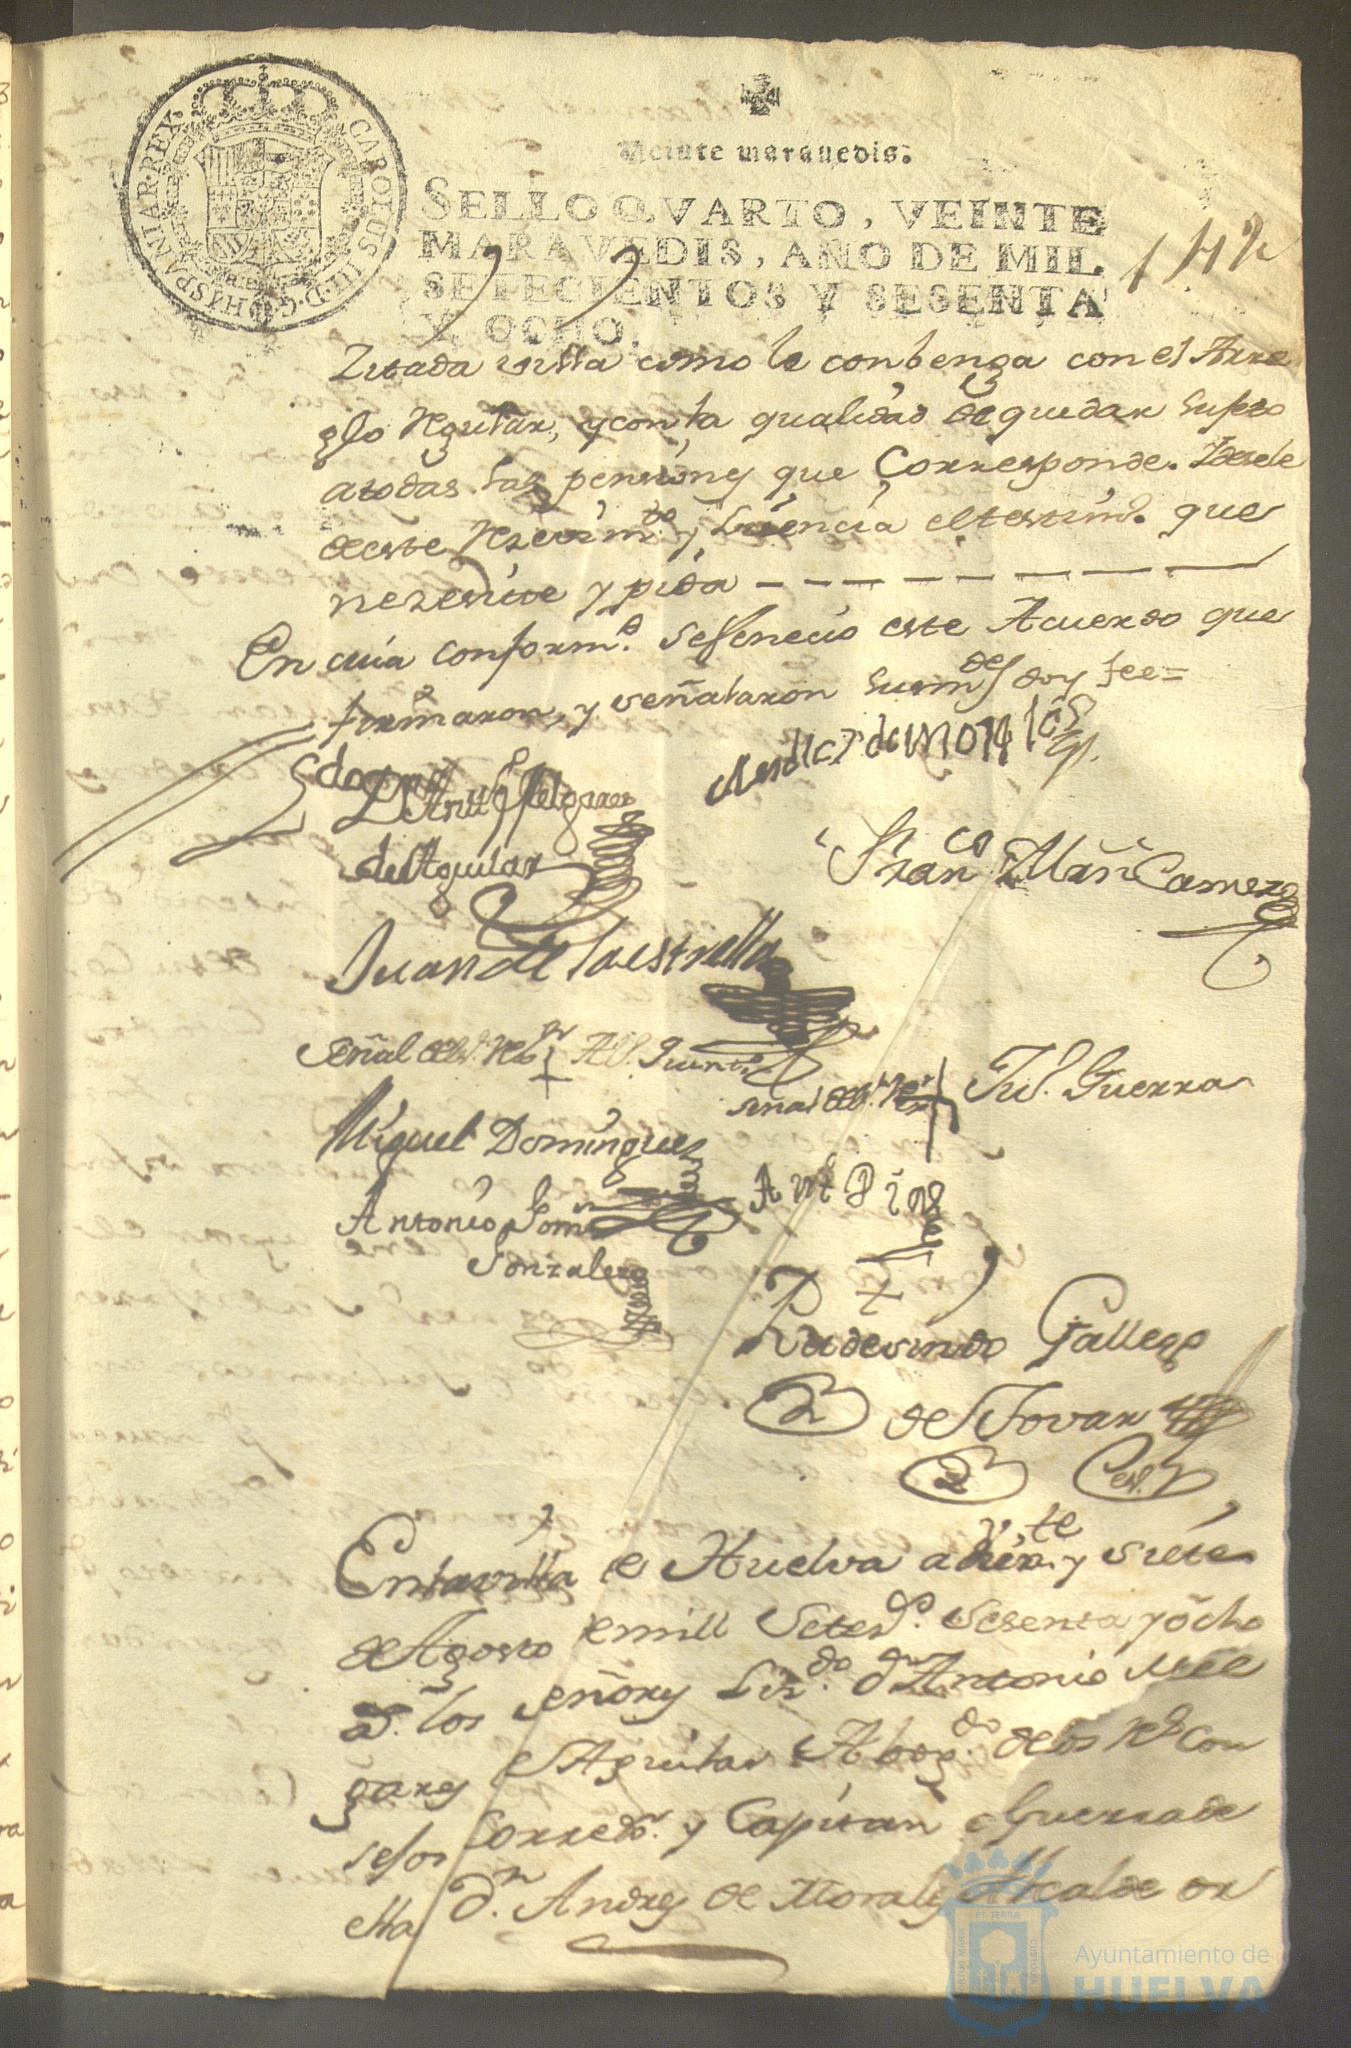 CAROLUS III D. G. HISPANIAR. REX.
Veinte marauedis.
SELLO QVARTO, VEINTE
MARAVEDIS, AÑO DE MIL
SETECIENTOS Y SESENTA
Y OCHO.
142
Zitada villa como le conbenga con el Arre
glo Regular, y con la qualidad de quedar sujeto
a todas las pensiones que Corresponde. Y desele
de este Rezevim.to y Lizencia el testim.o que
nezesite y pida
En cuia conform.d se feneció este Acuerdo que
firmaron, y señalaron sus m.des doy fee=
L.do D.n Antt.o Melgarex
de Aguilar
Andres de Morales
Fran.co Mrn Camero
Juan de la estrella
Señal del S.r Reg.or Al.o Quint.o
señal del S.r Reg.r Ju.o Guerra
Miguel Dominguez
Ant.o Diaz
Antonio Jph
Gonzalez
Rudesindo Gallego
de Tovar
Es.no
En la villa de Huelva a veinte y siete
de Agosto de mill Setez.s Sesenta y ocho
a.s los Señores Liz.do D.n Antonio Mel
garex de Aguilar Abog.do de los R.s Con
sejos Corred.r y Capitan a Guerra de
ella D.n Andres de Morales Alcalde or
Ayuntamiento de
HUELVA